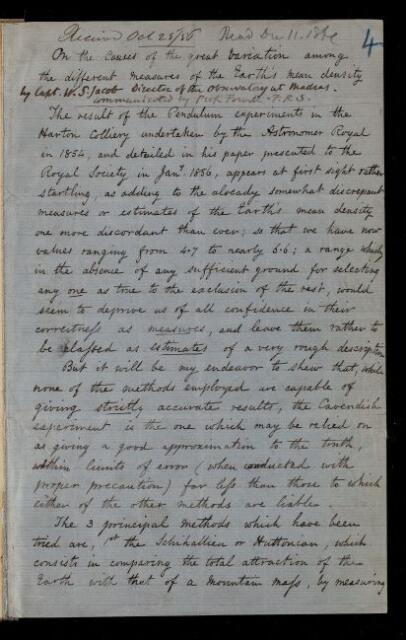 Received Oct 25/56 Read Dec 11. 1856
4
On the Causes of the great Variation among
the different measures of the Earth's mean density
by Capt. W. S. Jacob Director of the Observatory at Madras.
communicated by Prof. Powell. F.R.S.
The result of the Pendulum experiments in the
Harton Colliery undertaken by the Astronomer Royal
in 1854, and detailed in his paper presented to the
Royal Society in Jany. 1856, appears at first sight rather
startling, as adding to the already somewhat discrepant
measures or estimates of the Earth's mean density
one more discordant than ever; so that we have now
values ranging from 4.7 to nearly 6.6; a range which
in the absence of any sufficient ground for selecting
any one as true to the exclusion of the rest, would
seem to deprive us of all confidence in their
correctness as measures, and leave them rather to
be classed as estimates of a very rough description
But it will be my endeavor to shew that, while
none of the methods employed are capable of
giving strictly accurate results, the Cavendish
experiment is the one which may be relied on
as giving a good approximation to the truth,
within limits of error (when conducted with
proper precaution) far less than those to which
either of the other methods are liable.
The 3 principal methods which have been
tried are, 1st the Schihallien or Huttonian, which
consists in comparing the total attraction of the
Earth with that of a mountain mass, by measuring